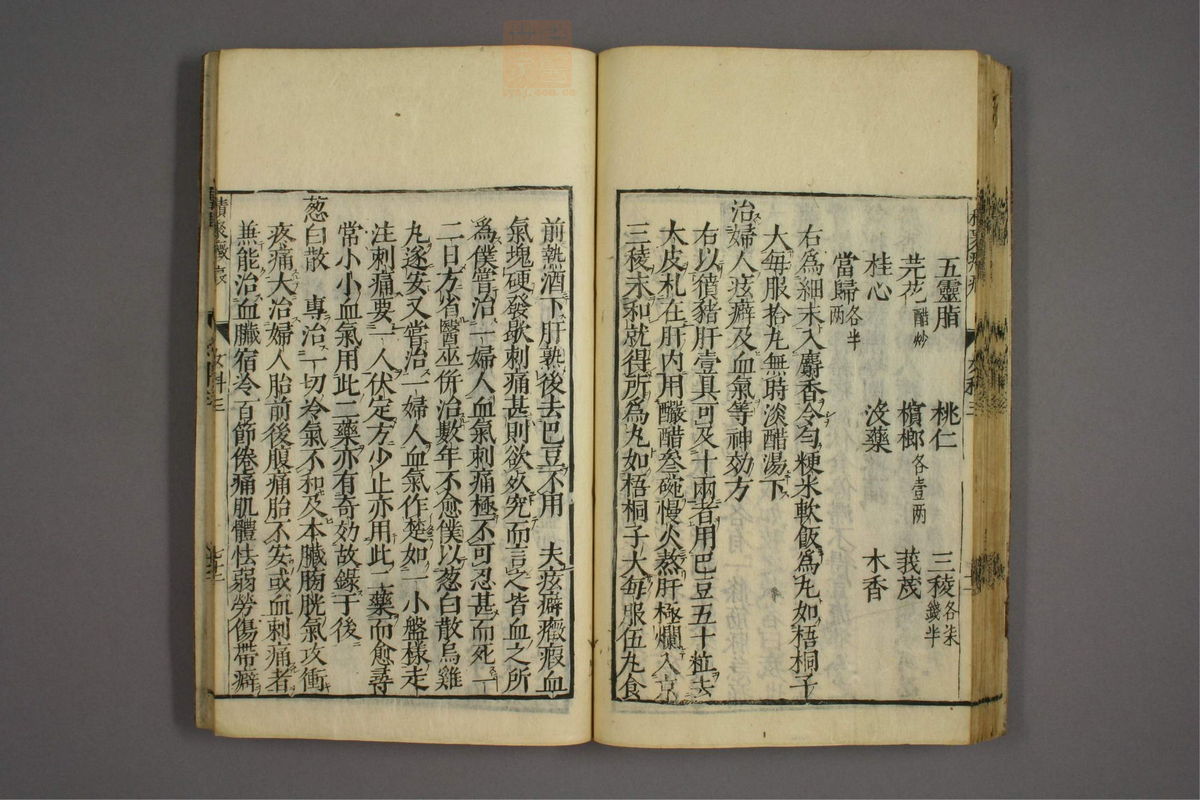 五靈脂 桃仁 三稜各柒錢半
芫花醋炒 檳榔各壹兩 莪茂
桂心 沒藥 木香
當歸各半兩
右爲細末入麝香令勻粳米軟飯爲丸如梧桐子
大每服拾丸無時淡醋湯下
治婦人痃癖及血氣等神効方
右以獖猪肝壹具可及十兩者用巴豆五十粒去
大皮札在肝内用釅醋叄碗慢火熬肝極爛入京
三稜末和就得所爲丸如梧桐子大每服伍丸食
前熱酒下肝熟後去巴豆不用 夫痃癖癥瘕血
氣塊硬發歇刺痛甚則欲妖究而言之皆血之所
爲僕嘗治一婦人血氣刺痛極不可忍甚而死一
二日方省醫巫併治數年不愈僕以葱白散烏雞
丸遂安又嘗治一婦人血氣作楚如一小盤樣走
注刺痛要一人伏定方少止亦用此二藥而愈尋
常小小血氣用此二藥亦有奇効故錄于後
葱白散 專治一切冷氣不和及本臟膀胱氣攻衝
疼痛大治婦人胎前後腹痛胎不安或血刺痛者
兼能治血臟宿冷百節倦痛肌體怯弱勞傷帶癖
女科三